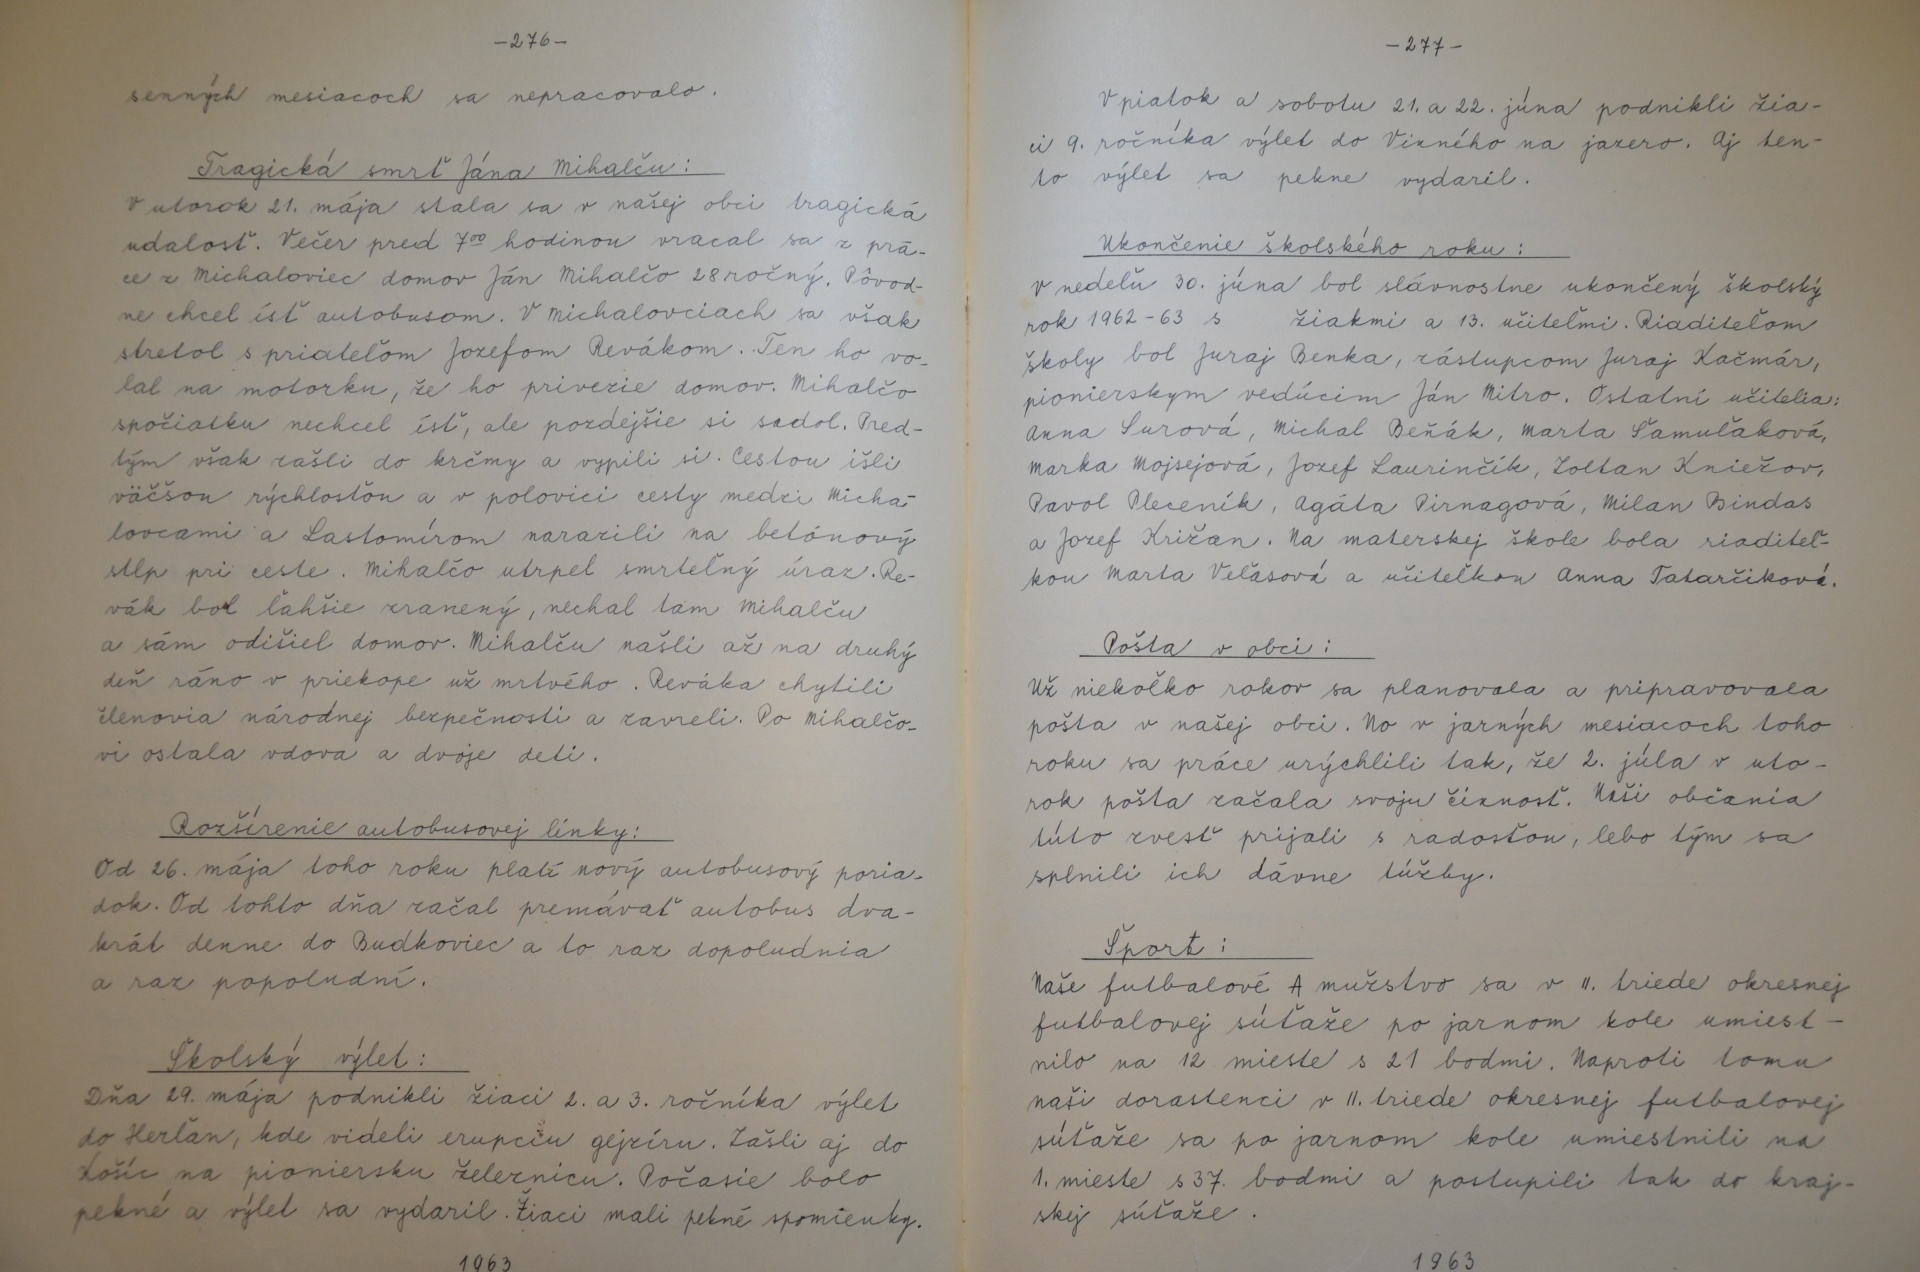 -276-
senných mesiacoch sa nepracovalo.
Tragická smrť Jána Mihalču:
V utorok 21. mája stala sa v našej obci tragická
udalosť. Večer pred 7⁰⁰ hodinou vracal sa z prá-
ce z Michaloviec domov Ján Mihalčo 28 ročný. Pôvod-
ne chcel ísť autobusom. V Michalovciach sa však
stretol s priateľom Jozefom Revákom. Ten ho vo-
lal na motorku, že ho privezie domov. Mihalčo
spočiatku nechcel ísť, ale pozdejšie si sadol. Pred-
tým však zašli do krčmy a vypili si. Cestou išli
väčšou rýchlosťou a v polovici cesty medzi Micha-
lovcami a Lastomírom narazili na betónový
stĺp pri ceste. Mihalčo utrpel smrteľný úraz. Re-
vák bol ľahšie zranený, nechal tam Mihalču
a sám odišiel domov. Mihalču našli až na druhý
deň ráno v priekope už mrtvého. Reváka chytili
členovia národnej bezpečnosti a zavreli. Po Mihalčo-
vi ostala vdova a dvoje deti.
Rozšírenie autobusovej línky:
Od 26. mája toho roku platí nový autobusový poria-
dok. Od tohto dňa začal premávať autobus dva-
krát denne do Budkoviec a to raz dopoludnia
a raz popoludní.
Školský výlet:
Dňa 29. mája podnikli žiaci 2. a 3. ročníka výlet
do Herľan, kde videli erupciu gejzíru. Zašli aj do
Košíc na pioniersku železnicu. Počasie bolo
pekné a výlet sa vydaril. Žiaci mali pekné spomienky.
1963
-277-
V piatok a sobotu 21. a 22. júna podnikli žia-
ci 9. ročníka výlet do Vinného na jazero. Aj ten-
to výlet sa pekne vydaril.
Ukončenie školského roku:
V nedeľu 30. júna bol slávnostne ukončený školský
rok 1962-63 s žiakmi a 13. učiteľmi. Riaditeľom
školy bol Juraj Benka, zástupcom Juraj Kačmár,
pionierskym vedúcim Ján Mitro. Ostatní učitelia:
Anna Surová, Michal Beňák, Marta Šamuľaková,
Marka Mojsejová, Jozef Laurinčík, Zoltan Kniežov,
Pavol Pleceník, Agáta Pirnagová, Milan Bindas
a Jozef Križan. Na materskej škole bola riaditeľ-
kou Marta Veľasová a učiteľkou Anna Tatarčiková.
Pošta v obci:
Už niekoľko rokov sa planovala a pripravovala
pošta v našej obci. No v jarných mesiacoch toho
roku sa práce urýchlili tak, že 2. júla v uto-
rok pošta začala svoju činnosť. Naši občania
túto zvesť prijali s radosťou, lebo tým sa
splnili ich dávne túžby.
Šport:
Naše futbalové A mužstvo sa v II. triede okresnej
futbalovej súťaže po jarnom kole umiest-
nilo na 12 mieste s 21 bodmi. Naproti tomu
naši dorastenci v II. triede okresnej futbalovej
súťaže sa po jarnom kole umiestnili na
1. mieste s 37. bodmi a postupili tak do kraj-
skej súťaže.
1963